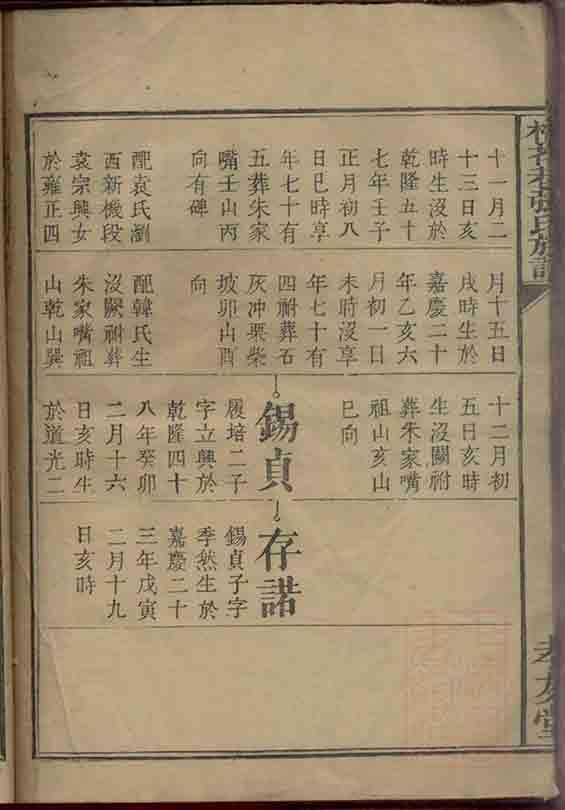 張氏族譜
孝友堂
十一月二
十三日亥
時生沒於
乾隆五十
七年壬子
正月初八
日巳時享
年七十有
五葬朱家
嘴壬山丙
向有碑
配袁氏瀏
西新機段
袁宗興女
於雍正四
月十五日
戌時生於
嘉慶二十
年乙亥六
月初一日
未時沒享
年七十有
四祔葬石
灰冲栗柴
坡卯山酉
向
配韓氏生
沒闕祔葬
朱家嘴祖
山乾山巽
十二月初
五日亥時
生沒闕祔
葬朱家嘴
祖山亥山
巳向
錫貞
履培二子
字立興於
乾隆四十
八年癸卯
二月十六
日亥時生
於道光二
存諾
錫貞子字
季然生於
嘉慶二十
三年戊寅
二月十九
日亥時